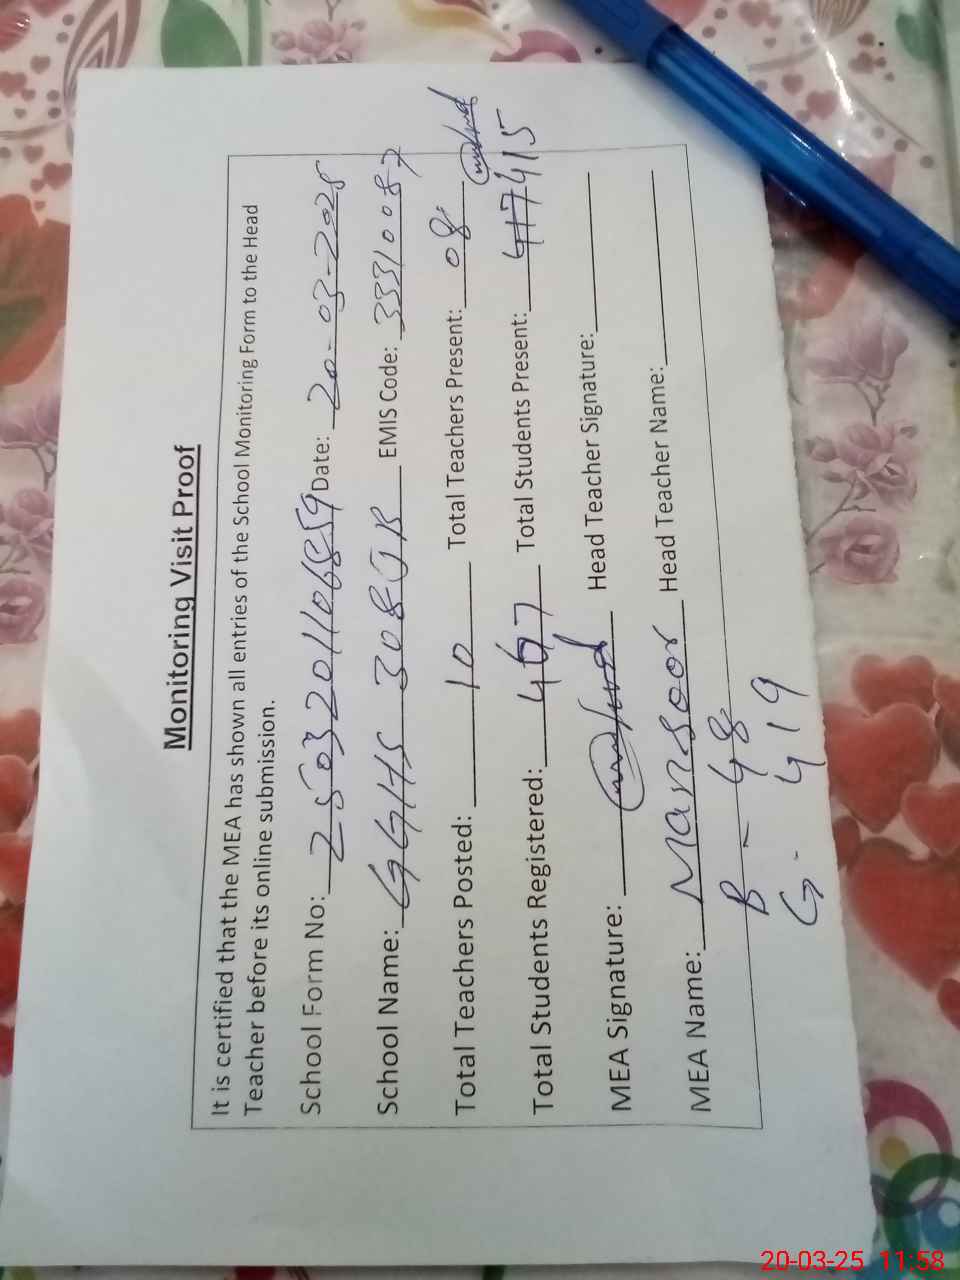 Monitoring Visit Proof
It is certified that the MEA has shown all entries of the School Monitoring Form to the Head
Teacher before its online submission.
School Form No: 2503201106859 Date: 20-03-2025
School Name: GGHS 308JB EMIS Code: 33310087
Total Teachers Posted: 10 Total Teachers Present: 08
Total Students Registered: 467 Total Students Present: 415
MEA Signature: Head Teacher Signature:
MEA Name: Mansoor Head Teacher Name:
B - 48
G - 419
20-03-25 11:58